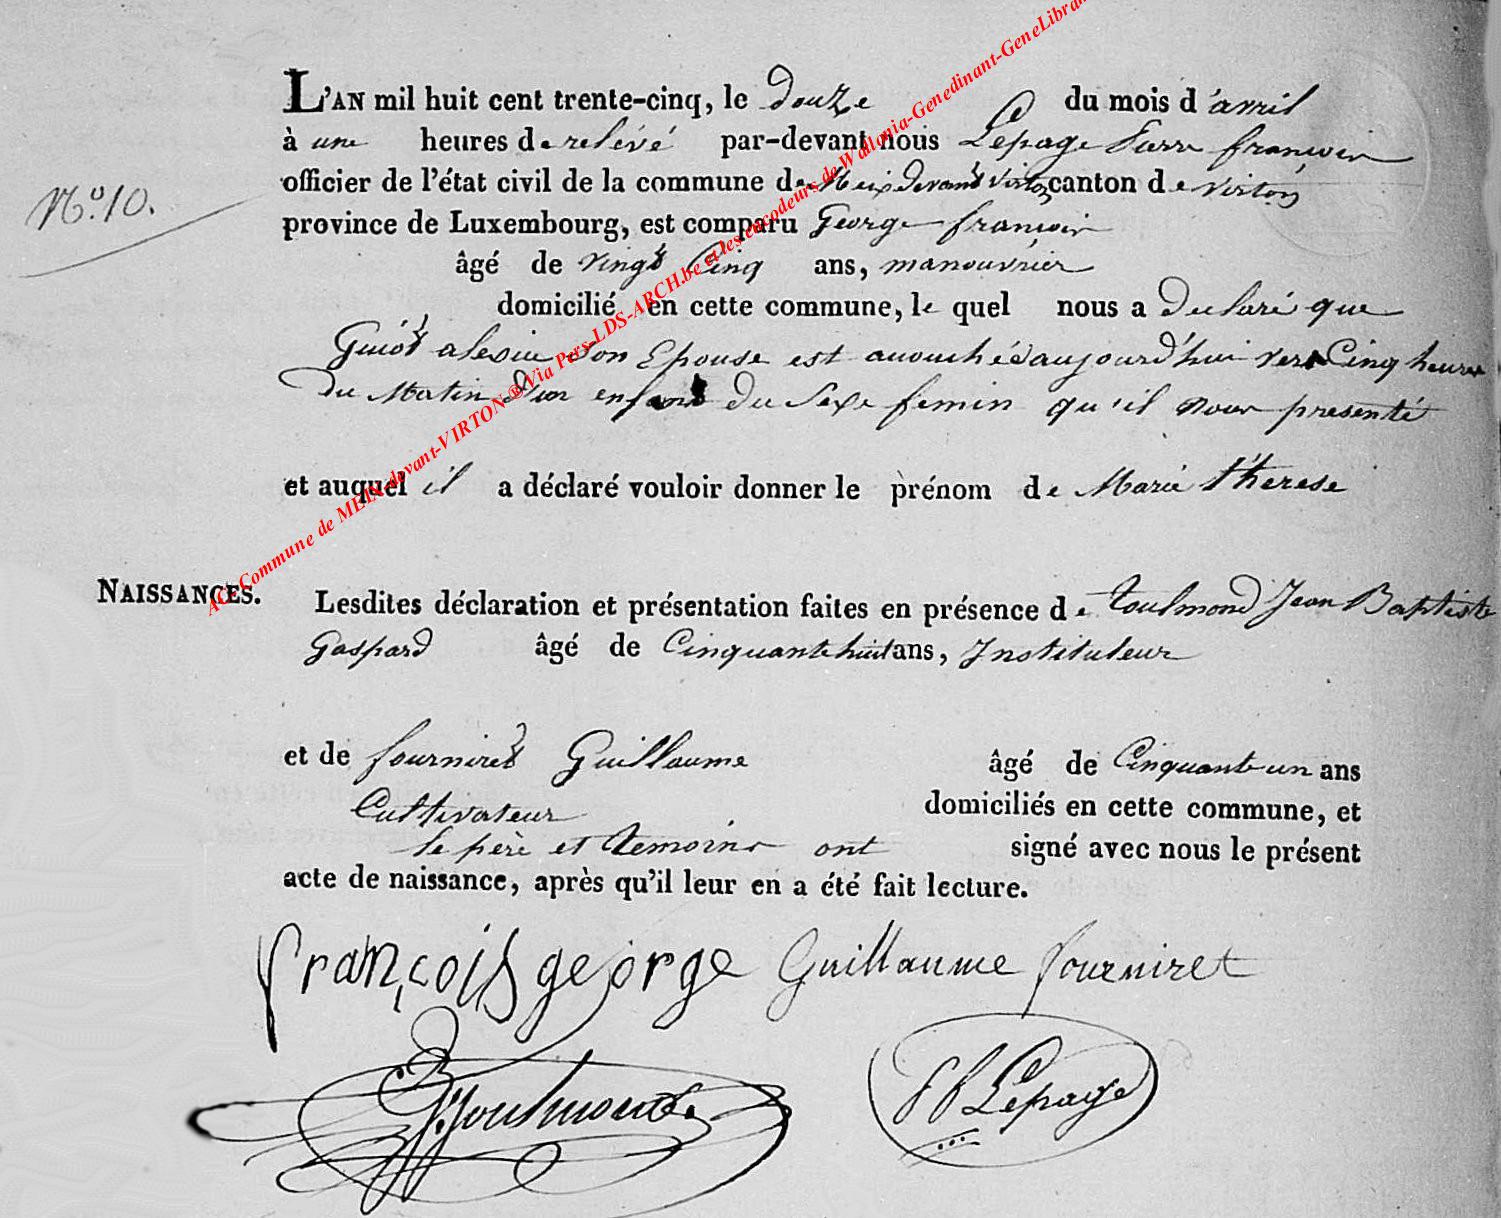 L'AN mil huit cent trente-cinq, le douze du mois d'avril
à une heures de relévé par-devant nous Lepage Pierre françois
N.º 10.
officier de l'état civil de la commune de Meix devant Virton canton de Virton
province de Luxembourg, est comparu George françois
âgé de vingt Cinq ans, manouvrier
domicilié en cette commune, le quel nous a Declaré que
Guiot alexie son Epouse est accouchée aujourd'hui vers Cinq heures
Du Matin D'un enfant Du Sexe femin qu'il nous presenté
et auquel il a déclaré vouloir donner le prénom de Marie thérese
NAISSANCES.
Lesdites déclaration et présentation faites en présence de toulmond Jean Baptiste
Gaspard âgé de Cinquante huit ans, Instituteur
et de fourniret Guillaume âgé de Cinquante un ans
Cultivateur domiciliés en cette commune, et
le père et temoins ont signé avec nous le présent
acte de naissance, après qu'il leur en a été fait lecture.
françois george Guillaume fourniret
Toulmond
Pf Lepage
AC- Commune de MEIX-devant-VIRTON ® Via Pers-LDS-ARCH.be et les encodeurs de Wallonia-Genedinant-GeneLibra